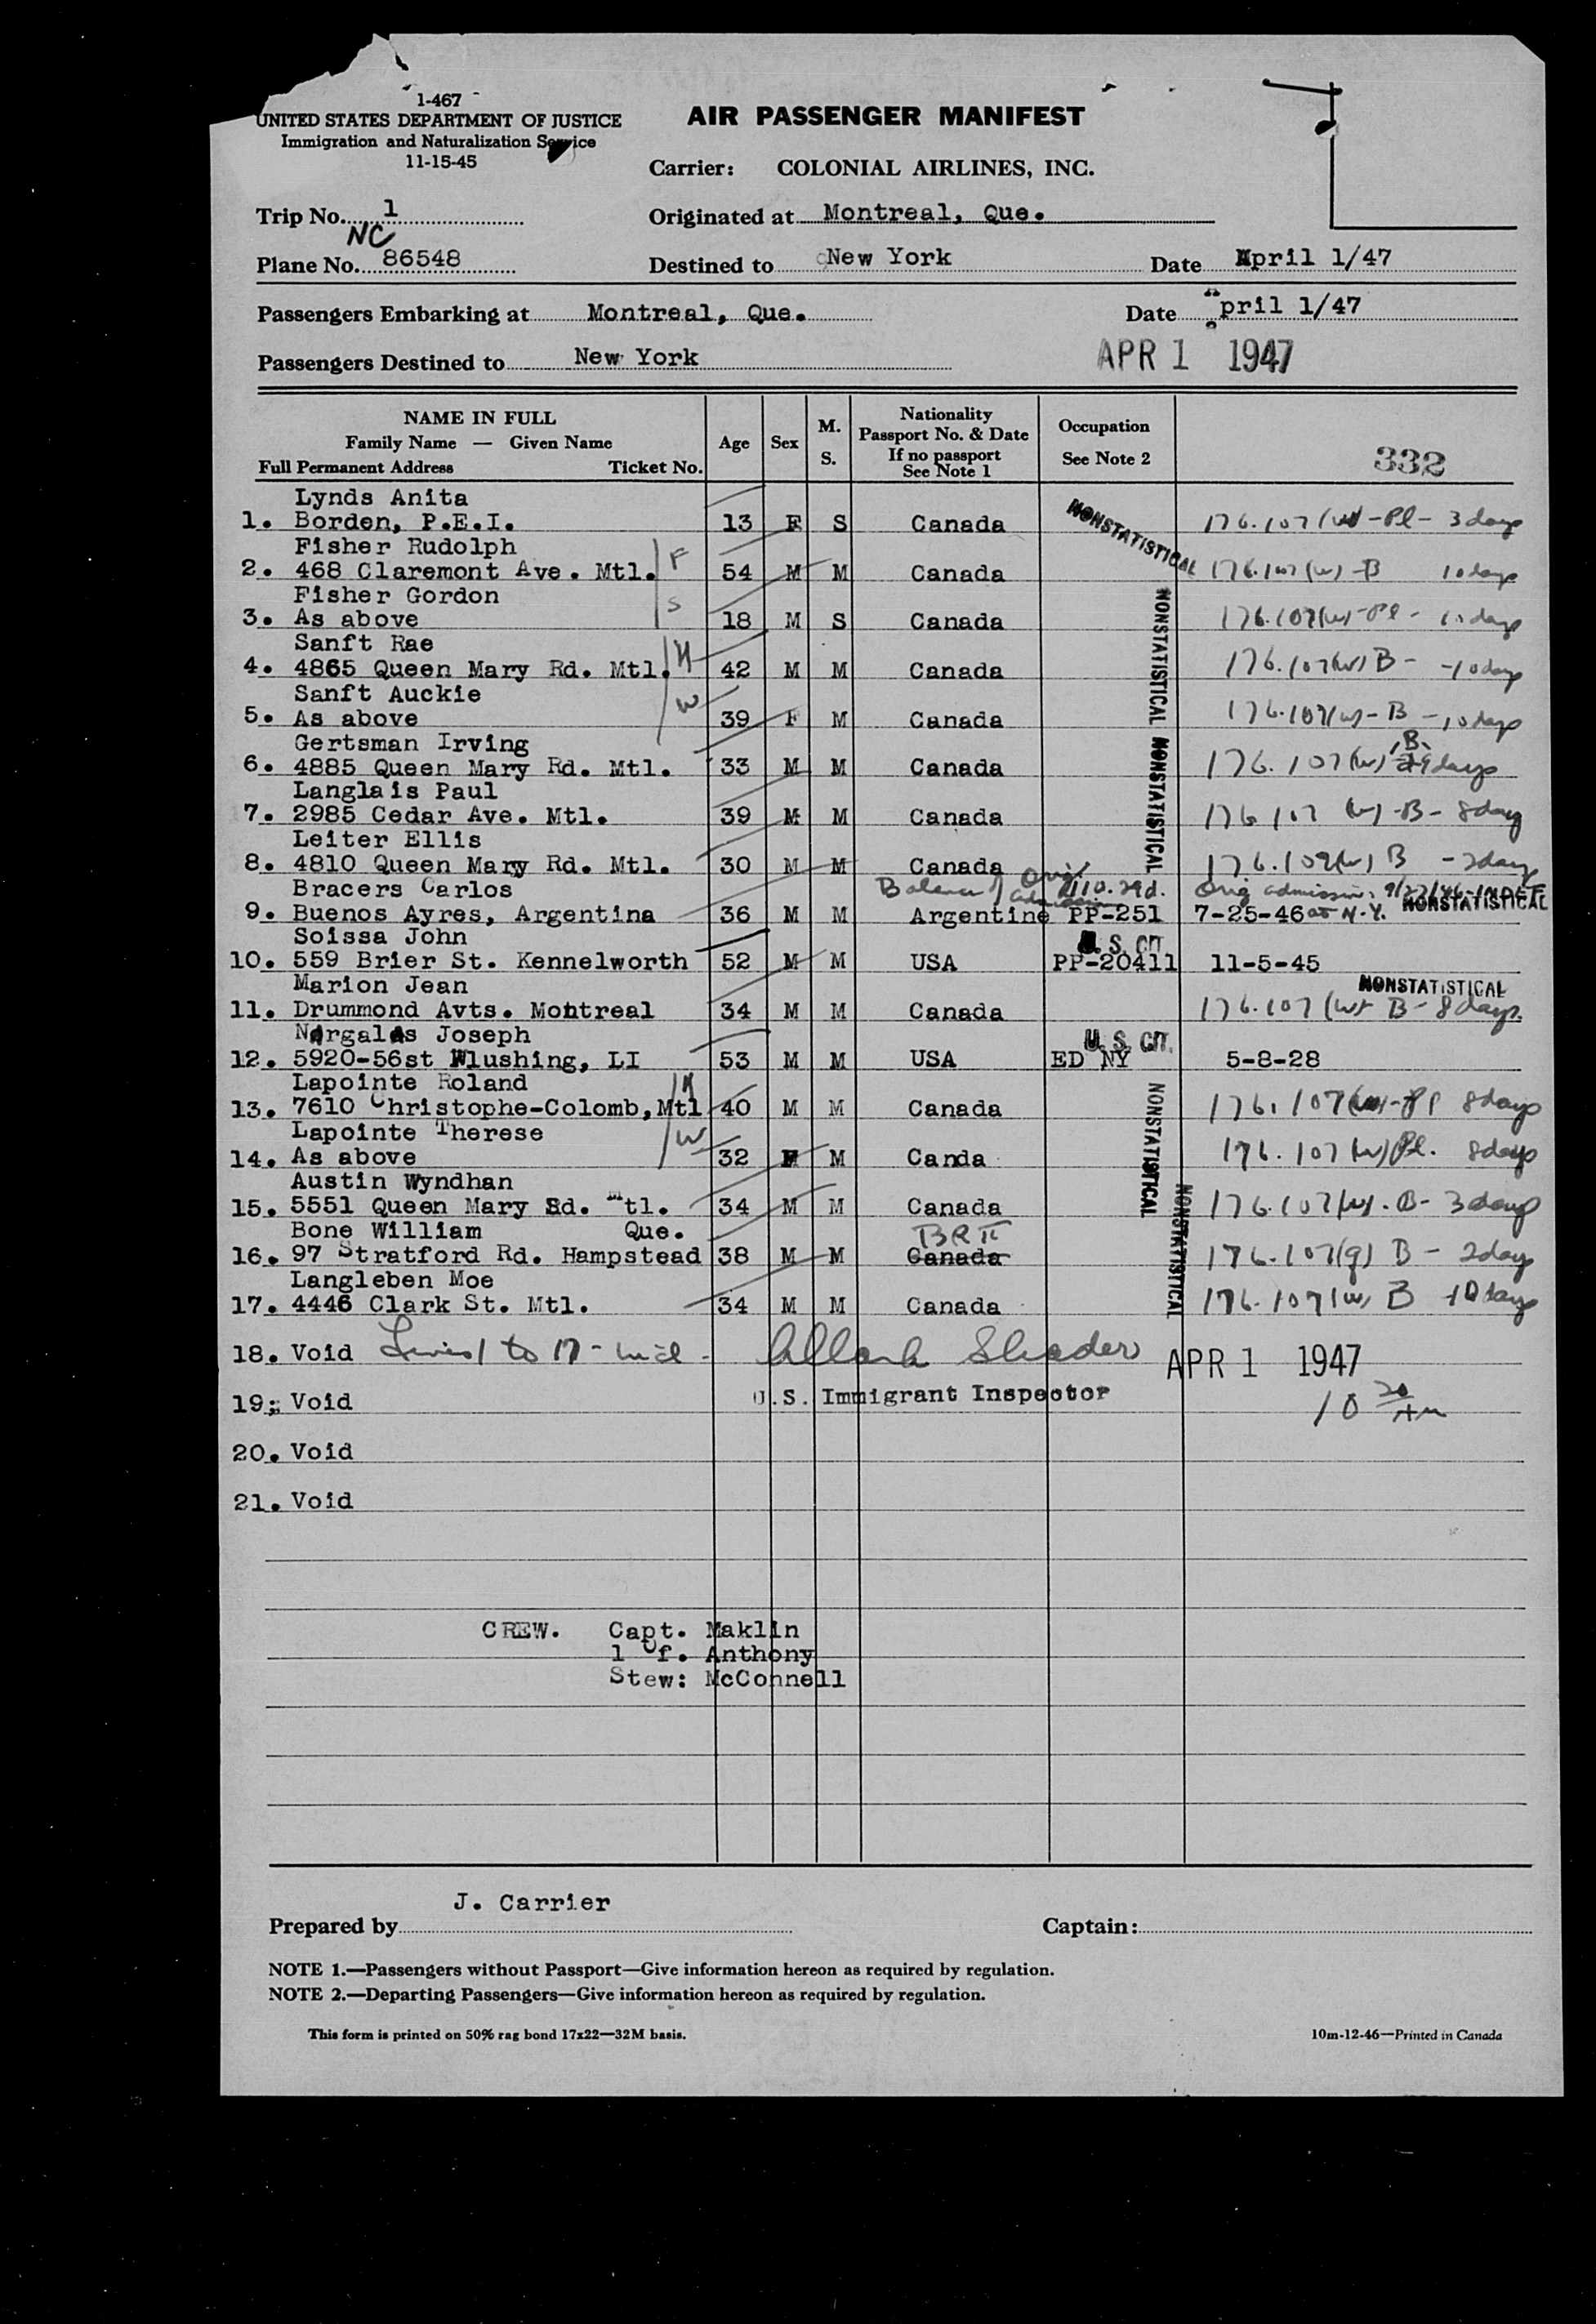 1-467
UNITED STATES DEPARTMENT OF JUSTICE
Immigration and Naturalization Service
11-15-45
AIR PASSENGER MANIFEST
Carrier: COLONIAL AIRLINES, INC.
Trip No. 1
Originated at Montreal, Que.
NC
Plane No. 86548
Destined to New York
Date April 1/47
Passengers Embarking at Montreal, Que.
Date April 1/47
Passengers Destined to New York
APR 1 1947
NAME IN FULL
Family Name — Given Name
Full Permanent Address Ticket No.
Age
Sex
M. S.
Nationality
Passport No. & Date
If no passport
See Note 1
Occupation
See Note 2
332
Lynds Anita
1. Borden, P.E.I. 13 F S Canada NONSTATISTICAL 176.107(w)-Pl- 3 days
Fisher Rudolph
2. 468 Claremont Ave. Mtl. F 54 M M Canada 176.107(w)-B 10 days
Fisher Gordon
3. As above S 18 M S Canada NONSTATISTICAL 176.107(w)-Pl- 10 days
Sanft Rae
4. 4865 Queen Mary Rd. Mtl. H 42 M M Canada 176.107(w) B- -10 days
Sanft Auckie
5. As above W 39 F M Canada 176.107(w)-B -10 days
Gertsman Irving
6. 4885 Queen Mary Rd. Mtl. 33 M M Canada NONSTATISTICAL 176.107(w) B days
Langlais Paul
7. 2985 Cedar Ave. Mtl. 39 M M Canada 176 107 (w)-B- 8 days
Leiter Ellis
8. 4810 Queen Mary Rd. Mtl. 30 M M Canada 176.107(w) B - 2 days
Bracers Carlos Balance of Orig. admission 110.29d. Orig admission 9/27/46
9. Buenos Ayres, Argentina 36 M M Argentine PP-251 7-25-46 at N.Y. NONSTATISTICAL
Soissa John U. S. CIT.
10. 559 Brier St. Kennelworth 52 M M USA PP-20411 11-5-45
Marion Jean NONSTATISTICAL
11. Drummond Avts. Montreal 34 M M Canada 176.107(w) B- 8 days.
Norgalas Joseph U. S. CIT.
12. 5920-56st Wlushing, LI 53 M M USA ED NY 5-8-28
Lapointe Roland
13. 7610 Christophe-Colomb, Mtl H 40 M M Canada NONSTATISTICAL 176.107(w)-Pl 8 days
Lapointe Therese
14. As above W 32 F M Canda 176.107(w) Pl. 8 days
Austin Wyndhan
15. 5551 Queen Mary Sd. Mtl. 34 M M Canada NONSTATISTICAL 176.107(w).B- 3 days
Bone William Que. BR
16. 97 Stratford Rd. Hampstead 38 M M Canada 176.107(q) B- 2 days
Langleben Moe
17. 4446 Clark St. Mtl. 34 M M Canada 176.107(w) B 10 days
18. Void Lines 1 to 17 - incl. APR 1 1947
19. Void U.S. Immigrant Inspector 10 20 AM
20. Void
21. Void
CREW. Capt. Maklin
1 Of. Anthony
Stew: McConnell
J. Carrier
Prepared by
Captain:
NOTE 1.—Passengers without Passport—Give information hereon as required by regulation.
NOTE 2.—Departing Passengers—Give information hereon as required by regulation.
This form is printed on 50% rag bond 17x22—32M basis.
10m-12-46—Printed in Canada